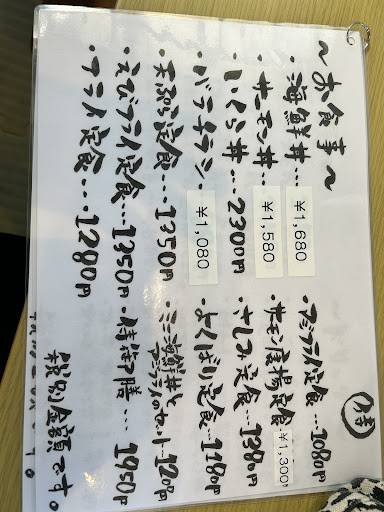 〜お食事〜
侍
・海鮮丼… ¥1,680
・サーモン丼… ¥1,580
・いくら丼…2300円
・バラチラシ… ¥1,080
・天ぷら定食…1350円
・えびフライ定食…1350円
・フライ定食…1280円
・アジフライ定食…1080円
・サーモン唐揚定食 ¥1,300
・さしみ定食…1380円
・よくばり定食…1180円
・ミニ海鮮丼と
アジフライのセット…
・侍御膳…1950円
税別金額です。